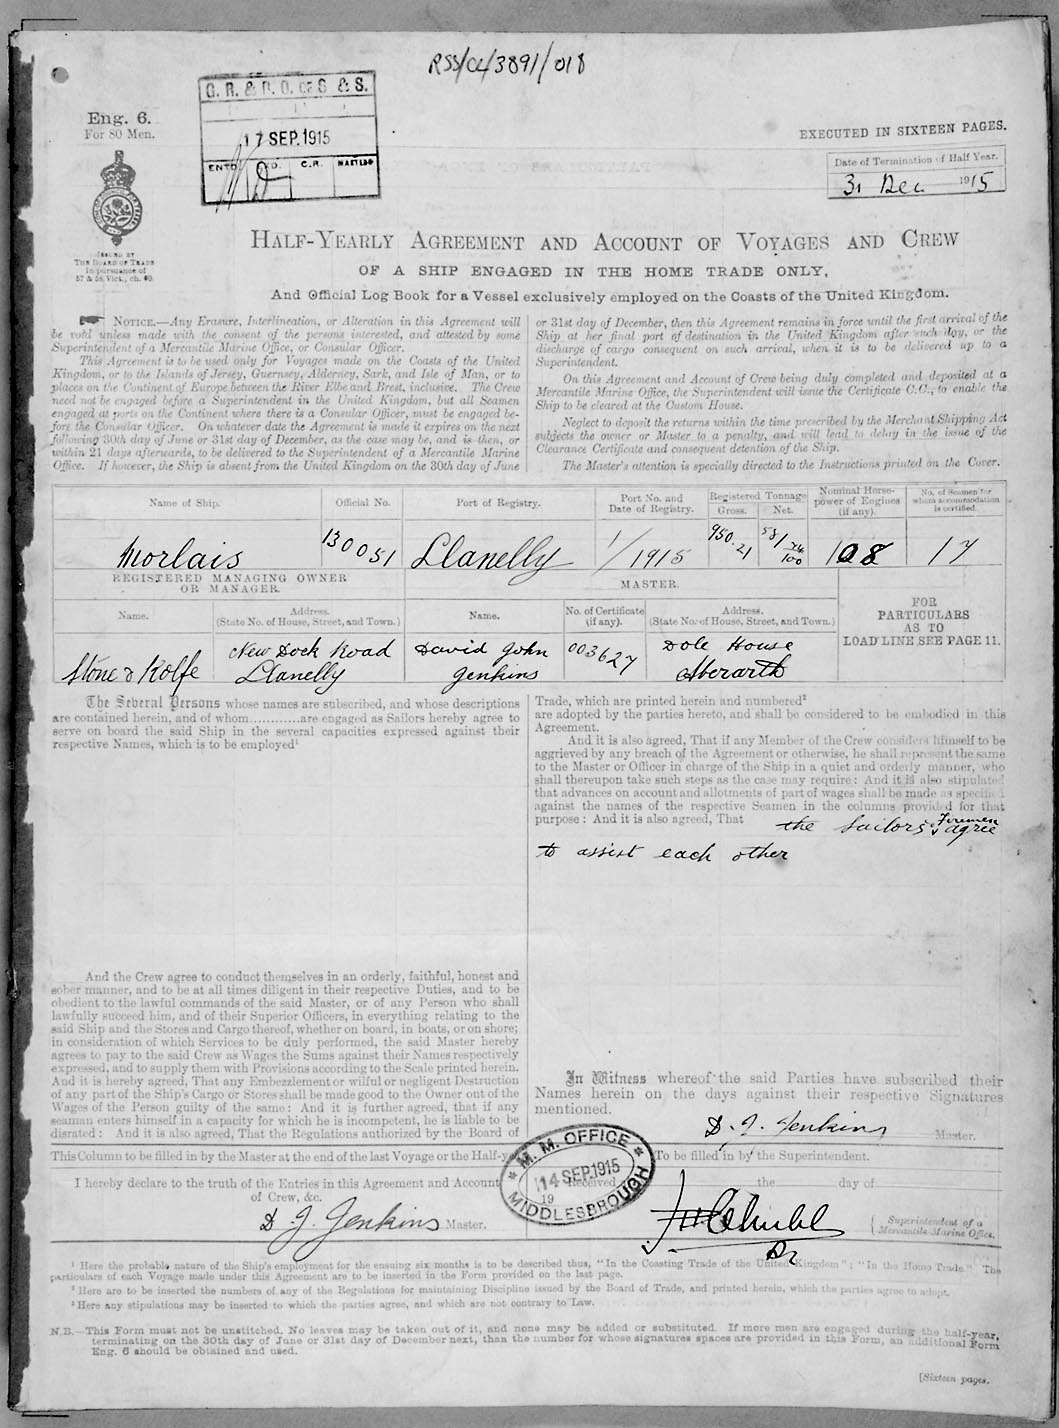 RSS/CL/3891/018
G. R. & R. O. OF S & S.
17 SEP. 1915
ENTD. C.R.
Eng. 6.
For 80 Men.
EXECUTED IN SIXTEEN PAGES.
Date of Termination of Half Year.
31 Dec 1915
ISSUED BY
THE BOARD OF TRADE
in pursuance of
57 & 58 Vict., ch. 60.
HALF-YEARLY AGREEMENT AND ACCOUNT OF VOYAGES AND CREW
OF A SHIP ENGAGED IN THE HOME TRADE ONLY,
And Official Log Book for a Vessel exclusively employed on the Coasts of the United Kingdom.
NOTICE.—Any Erasure, Interlineation, or Alteration in this Agreement will
be void unless made with the consent of the persons interested, and attested by some
Superintendent of a Mercantile Marine Office, or Consular Officer.
This Agreement is to be used only for Voyages made on the Coasts of the United
Kingdom, or to the Islands of Jersey, Guernsey, Alderney, Sark, and Isle of Man, or to
places on the Continent of Europe between the River Elbe and Brest, inclusive. The Crew
need not be engaged before a Superintendent in the United Kingdom, but all Seamen
engaged at ports on the Continent where there is a Consular Officer, must be engaged be-
fore the Consular Officer. On whatever date the Agreement is made it expires on the next
following 30th day of June or 31st day of December, as the case may be, and is then, or
within 21 days afterwards, to be delivered to the Superintendent of a Mercantile Marine
Office. If however, the Ship is absent from the United Kingdom on the 30th day of June
or 31st day of December, then this Agreement remains in force until the first arrival of the
Ship at her final port of destination in the United Kingdom after such day, or the
discharge of cargo consequent on such arrival, when it is to be delivered up to a
Superintendent.
On this Agreement and Account of Crew being duly completed and deposited at a
Mercantile Marine Office, the Superintendent will issue the Certificate C.C., to enable the
Ship to be cleared at the Custom House.
Neglect to deposit the returns within the time prescribed by the Merchant Shipping Act
subjects the owner or Master to a penalty, and will lead to delay in the issue of the
Clearance Certificate and consequent detention of the Ship.
The Master's attention is specially directed to the Instructions printed on the Cover.
Name of Ship. Official No. Port of Registry. Port No. and Date of Registry. Registered Tonnage Gross. Net. Nominal Horse-power of Engines (if any). No. of Seamen for whom accommodation is certified.
Morlais 130051 Llanelly 1/1915 950.21 581 74/100 108 17
REGISTERED MANAGING OWNER OR MANAGER. MASTER.
Name. Address. (State No. of House, Street, and Town.) Name. No. of Certificate (if any). Address. (State No. of House, Street, and Town.)
FOR
PARTICULARS
AS TO
LOAD LINE SEE PAGE 11.
Stone & Rolfe New Dock Road Llanelly David John Jenkins 003627 Dole House Aberarth
The Several Persons whose names are subscribed, and whose descriptions
are contained herein, and of whom............are engaged as Sailors hereby agree to
serve on board the said Ship in the several capacities expressed against their
respective Names, which is to be employed¹
And the Crew agree to conduct themselves in an orderly, faithful, honest and
sober manner, and to be at all times diligent in their respective Duties, and to be
obedient to the lawful commands of the said Master, or of any Person who shall
lawfully succeed him, and of their Superior Officers, in everything relating to the
said Ship and the Stores and Cargo thereof, whether on board, in boats, or on shore;
in consideration of which Services to be duly performed, the said Master hereby
agrees to pay to the said Crew as Wages the Sums against their Names respectively
expressed, and to supply them with Provisions according to the Scale printed herein.
And it is hereby agreed, That any Embezzlement or wilful or negligent Destruction
of any part of the Ship's Cargo or Stores shall be made good to the Owner out of the
Wages of the Person guilty of the same: And it is further agreed, that if any
seaman enters himself in a capacity for which he is incompetent, he is liable to be
disrated: And it is also agreed, That the Regulations authorized by the Board of
Trade, which are printed herein and numbered²
are adopted by the parties hereto, and shall be considered to be embodied in this
Agreement.
And it is also agreed, That if any Member of the Crew considers himself to be
aggrieved by any breach of the Agreement or otherwise, he shall represent the same
to the Master or Officer in charge of the Ship in a quiet and orderly manner, who
shall thereupon take such steps as the case may require: And it is also stipulated
that advances on account and allotments of part of wages shall be made as specified
against the names of the respective Seamen in the columns provided for that
purpose: And it is also agreed, That the Sailors & Firemen agree
to assist each other
In Witness whereof the said Parties have subscribed their
Names herein on the days against their respective Signatures
mentioned.
D. J. Jenkins Master.
This Column to be filled in by the Master at the end of the last Voyage or the Half-y
To be filled in by the Superintendent.
I hereby declare to the truth of the Entries in this Agreement and Account
of Crew, &c.
D. J. Jenkins Master.
M. M. OFFICE
14 SEP. 1915
MIDDLESBROUGH
19 Received the day of
Superintendent of a
Mercantile Marine Office.
¹ Here the probable nature of the Ship's employment for the ensuing six months is to be described thus, "In the Coasting Trade of the United Kingdom"; "In the Home Trade." The
particulars of each Voyage made under this Agreement are to be inserted in the Form provided on the last page.
² Here are to be inserted the numbers of any of the Regulations for maintaining Discipline issued by the Board of Trade, and printed herein, which the parties agree to adopt.
³ Here any stipulations may be inserted to which the parties agree, and which are not contrary to Law.
N.B.—This Form must not be unstitched. No leaves may be taken out of it, and none may be added or substituted. If more men are engaged during the half-year,
terminating on the 30th day of June or 31st day of December next, than the number for whose signatures spaces are provided in this Form, an additional Form
Eng. 6 should be obtained and used.
[Sixteen pages.